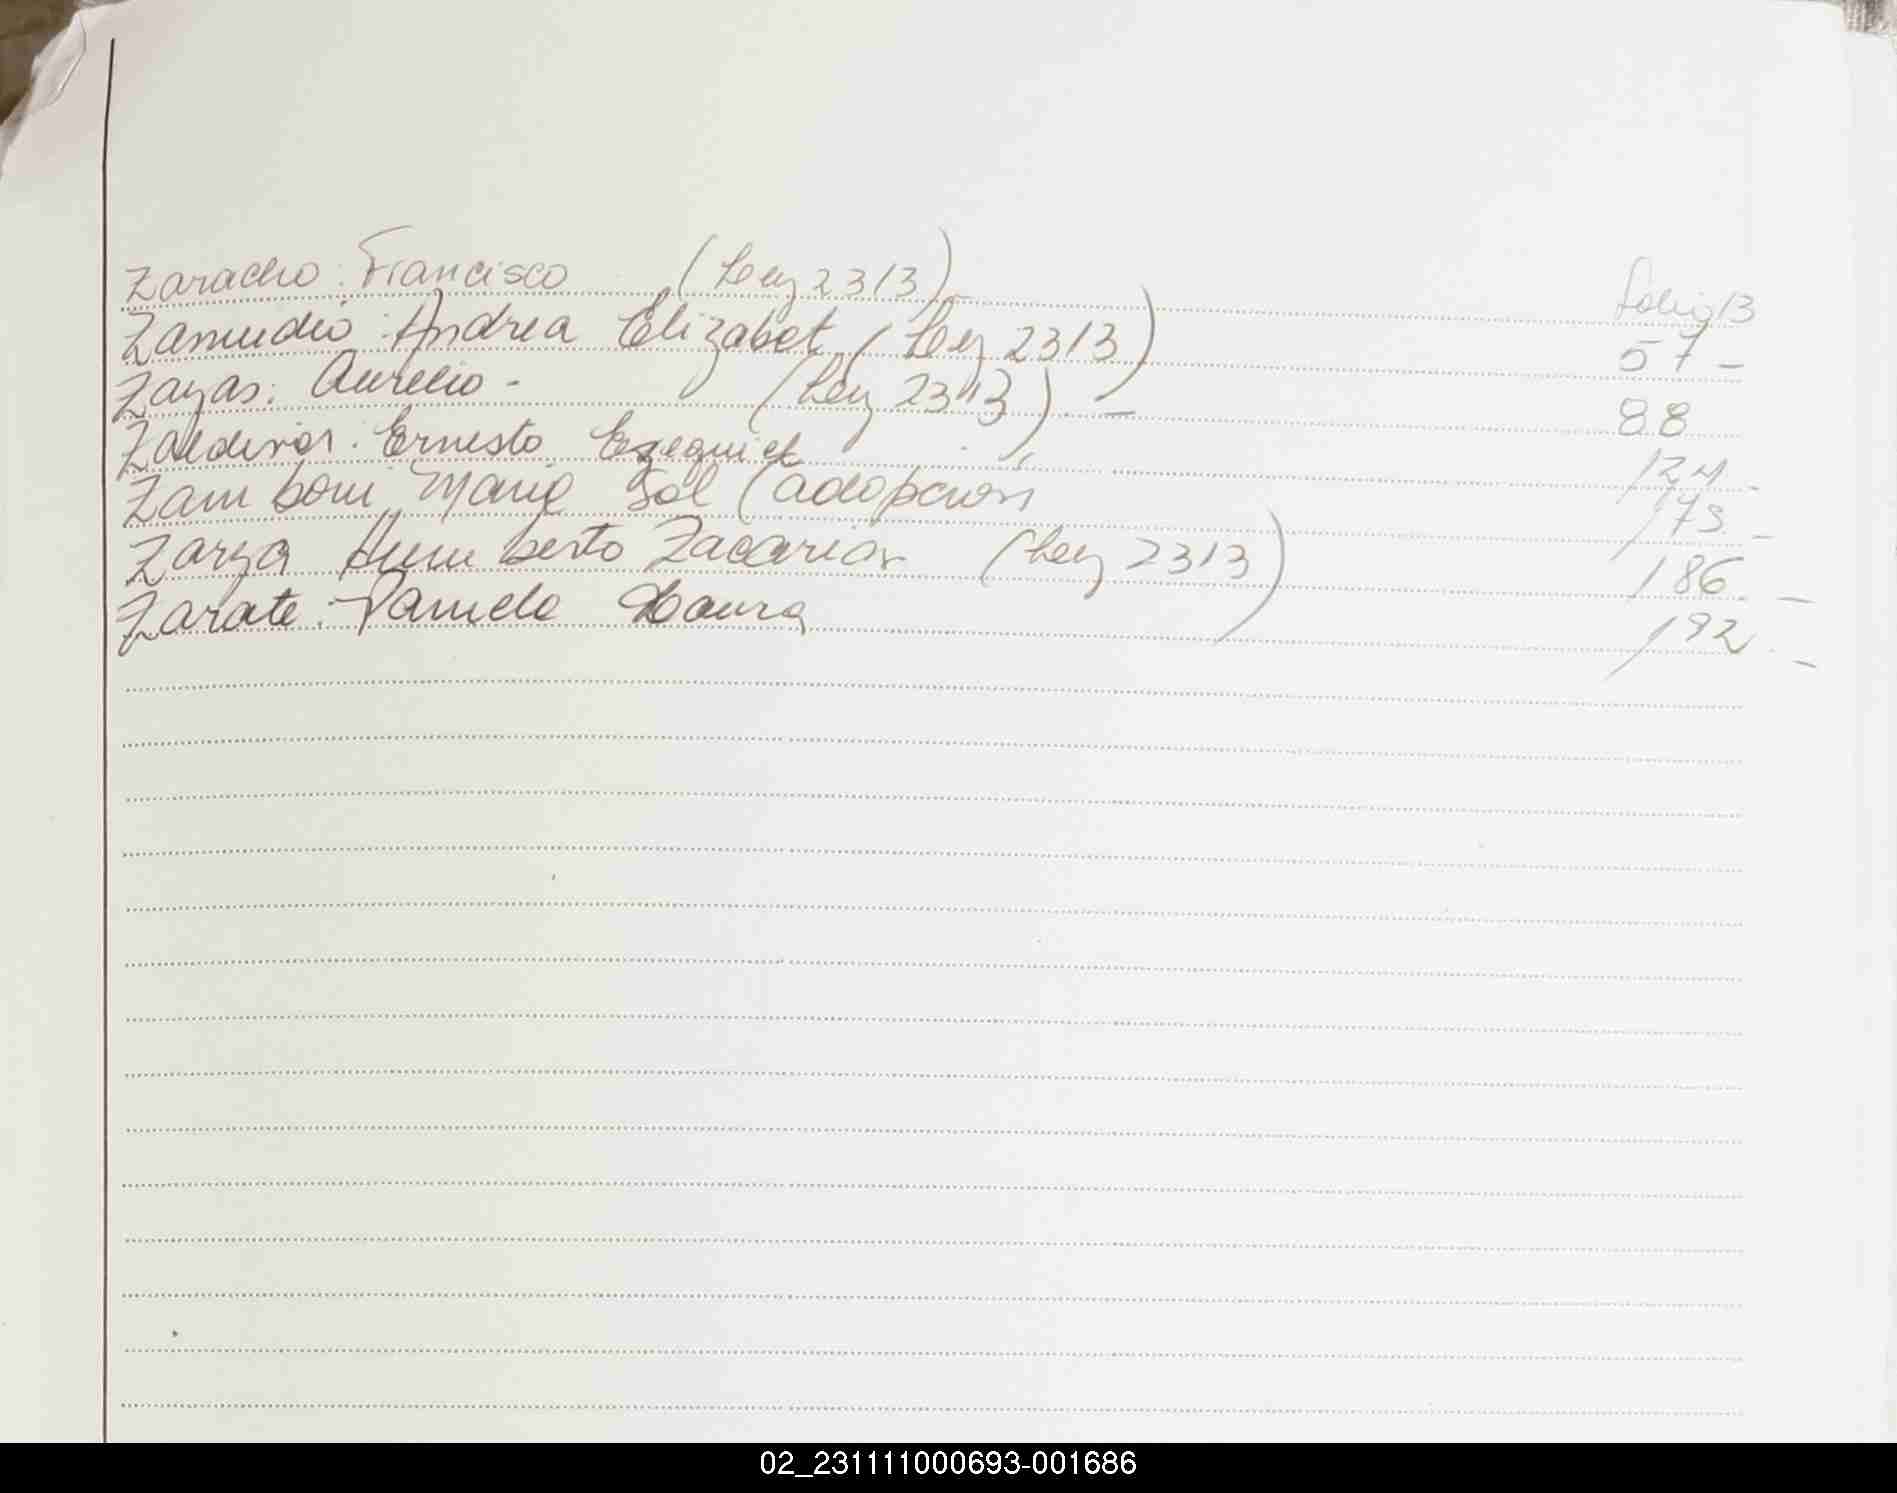 Zaracho: Francisco (Ley 2313) folio 13
Zamudio: Andrea Elizabet (Ley 2313) 57 -
Zayas: Aurelio - (Ley 2313) - 88
Zaldivar: Ernesto Ezequiel 124 -
Zamboni Maria Sol (adopción 173 -
Zarza Humberto Zacarias (Ley 2313) 186 -
Zarate: Pamela Laura 192 -
02_231111000693-001686